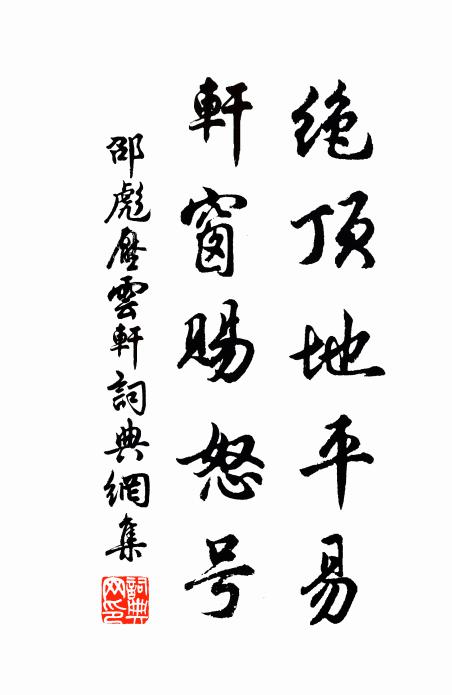 绝顶地平易
軒窗賜怒号
邵彪壓雲軒詞典網集
詞典网印